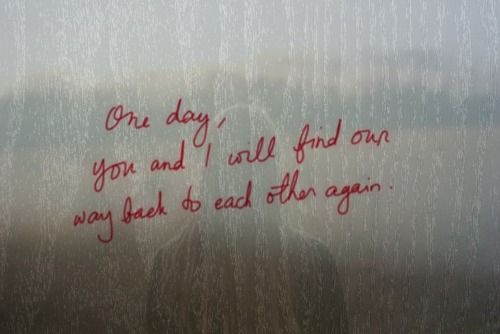 One day,
you and I will find our
way back to each other again.